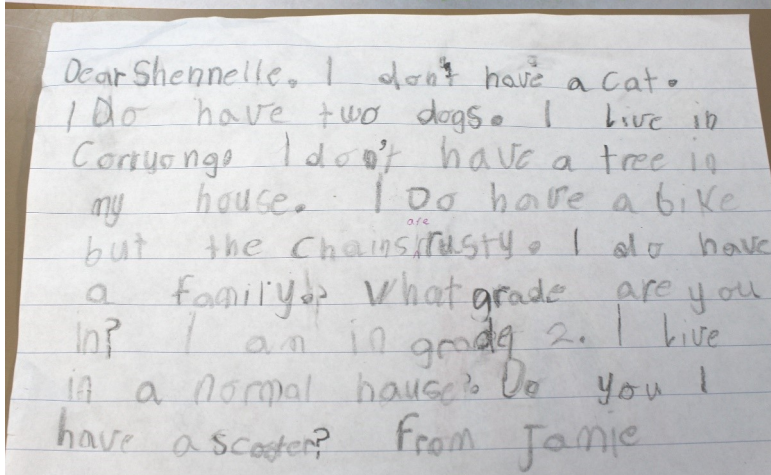 Dear Shennelle. I don't have a cat.
I Do have two dogs. I Live in
Corryong. I don't have a tree in
my house. I Do have a bike
are
but the chains rusty. I do have
a family. What grade are you
in? I am in grade 2. I Live
in a normal hause. Do you
have a scooter? From Jamie